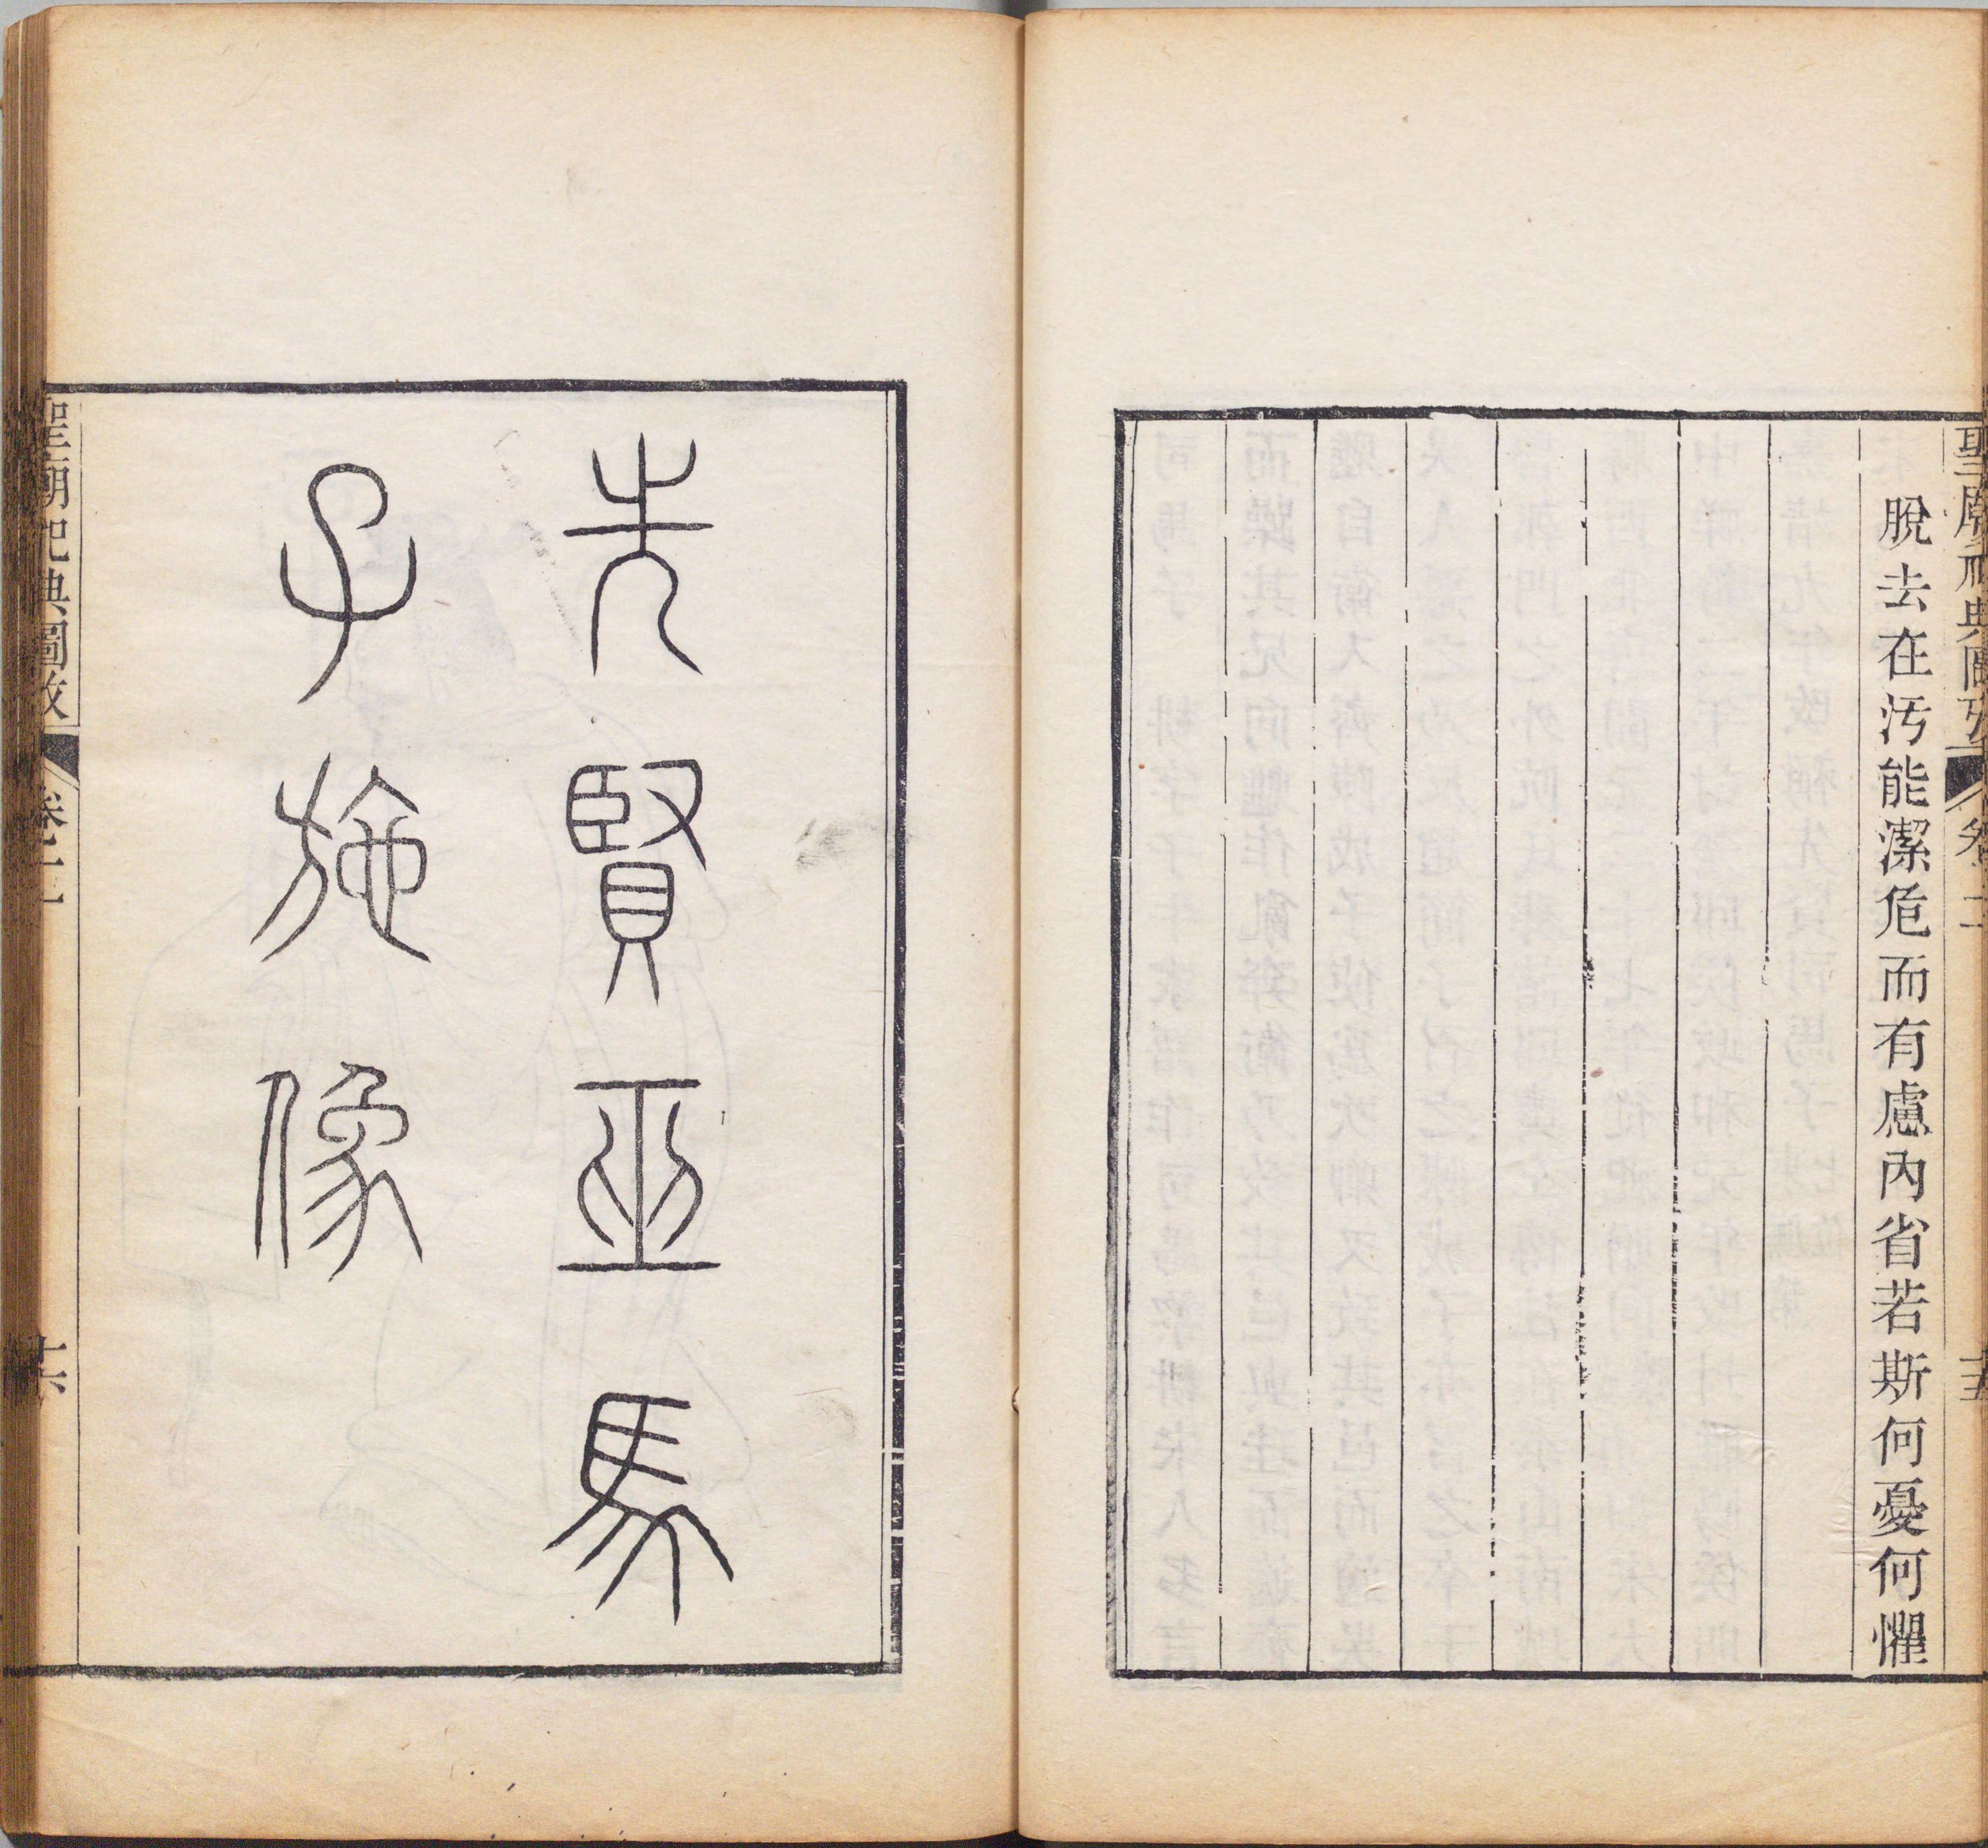 聖廟祀典圖攷
卷二
十五
脫去在汚能潔危而有慮內省若斯何憂何懼
先賢巫馬
子施像
聖廟祀典圖攷
卷二
十六